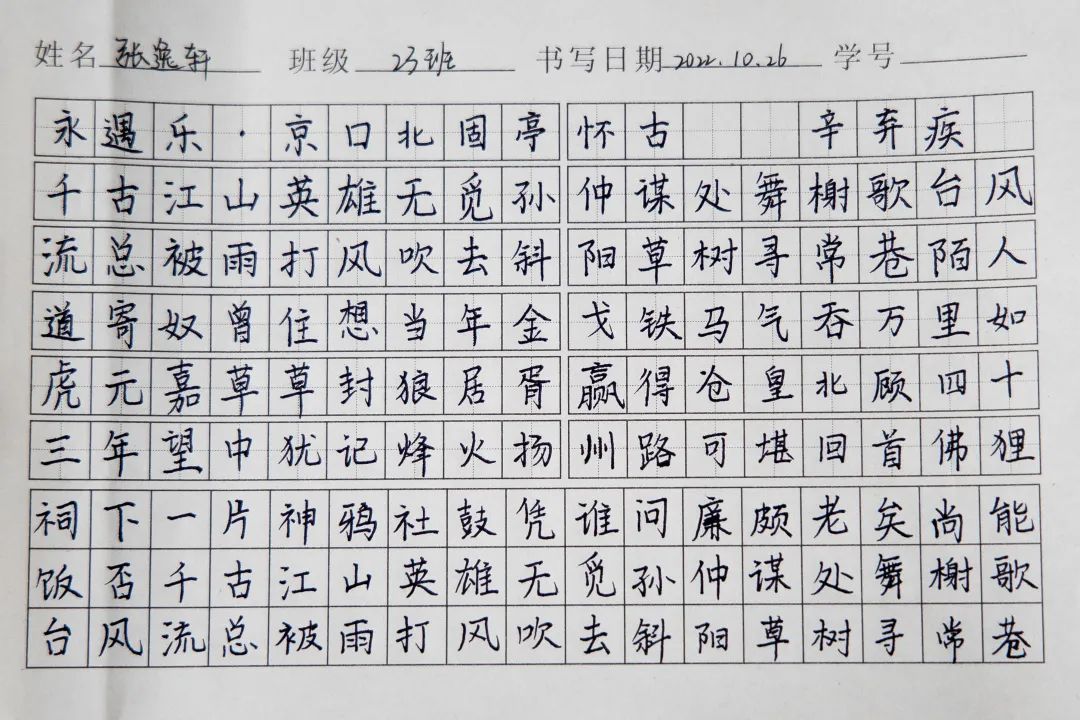 姓名 张逸轩 班级 23班 书写日期 2022.10.26 学号
永遇乐·京口北固亭怀古 辛弃疾
千古江山英雄无觅孙仲谋处舞榭歌台风
流总被雨打风吹去斜阳草树寻常巷陌人
道寄奴曾住想当年金戈铁马气吞万里如
虎元嘉草草封狼居胥赢得仓皇北顾四十
三年望中犹记烽火扬州路可堪回首佛狸
祠下一片神鸦社鼓凭谁问廉颇老矣尚能
饭否千古江山英雄无觅孙仲谋处舞榭歌
台风流总被雨打风吹去斜阳草树寻常巷